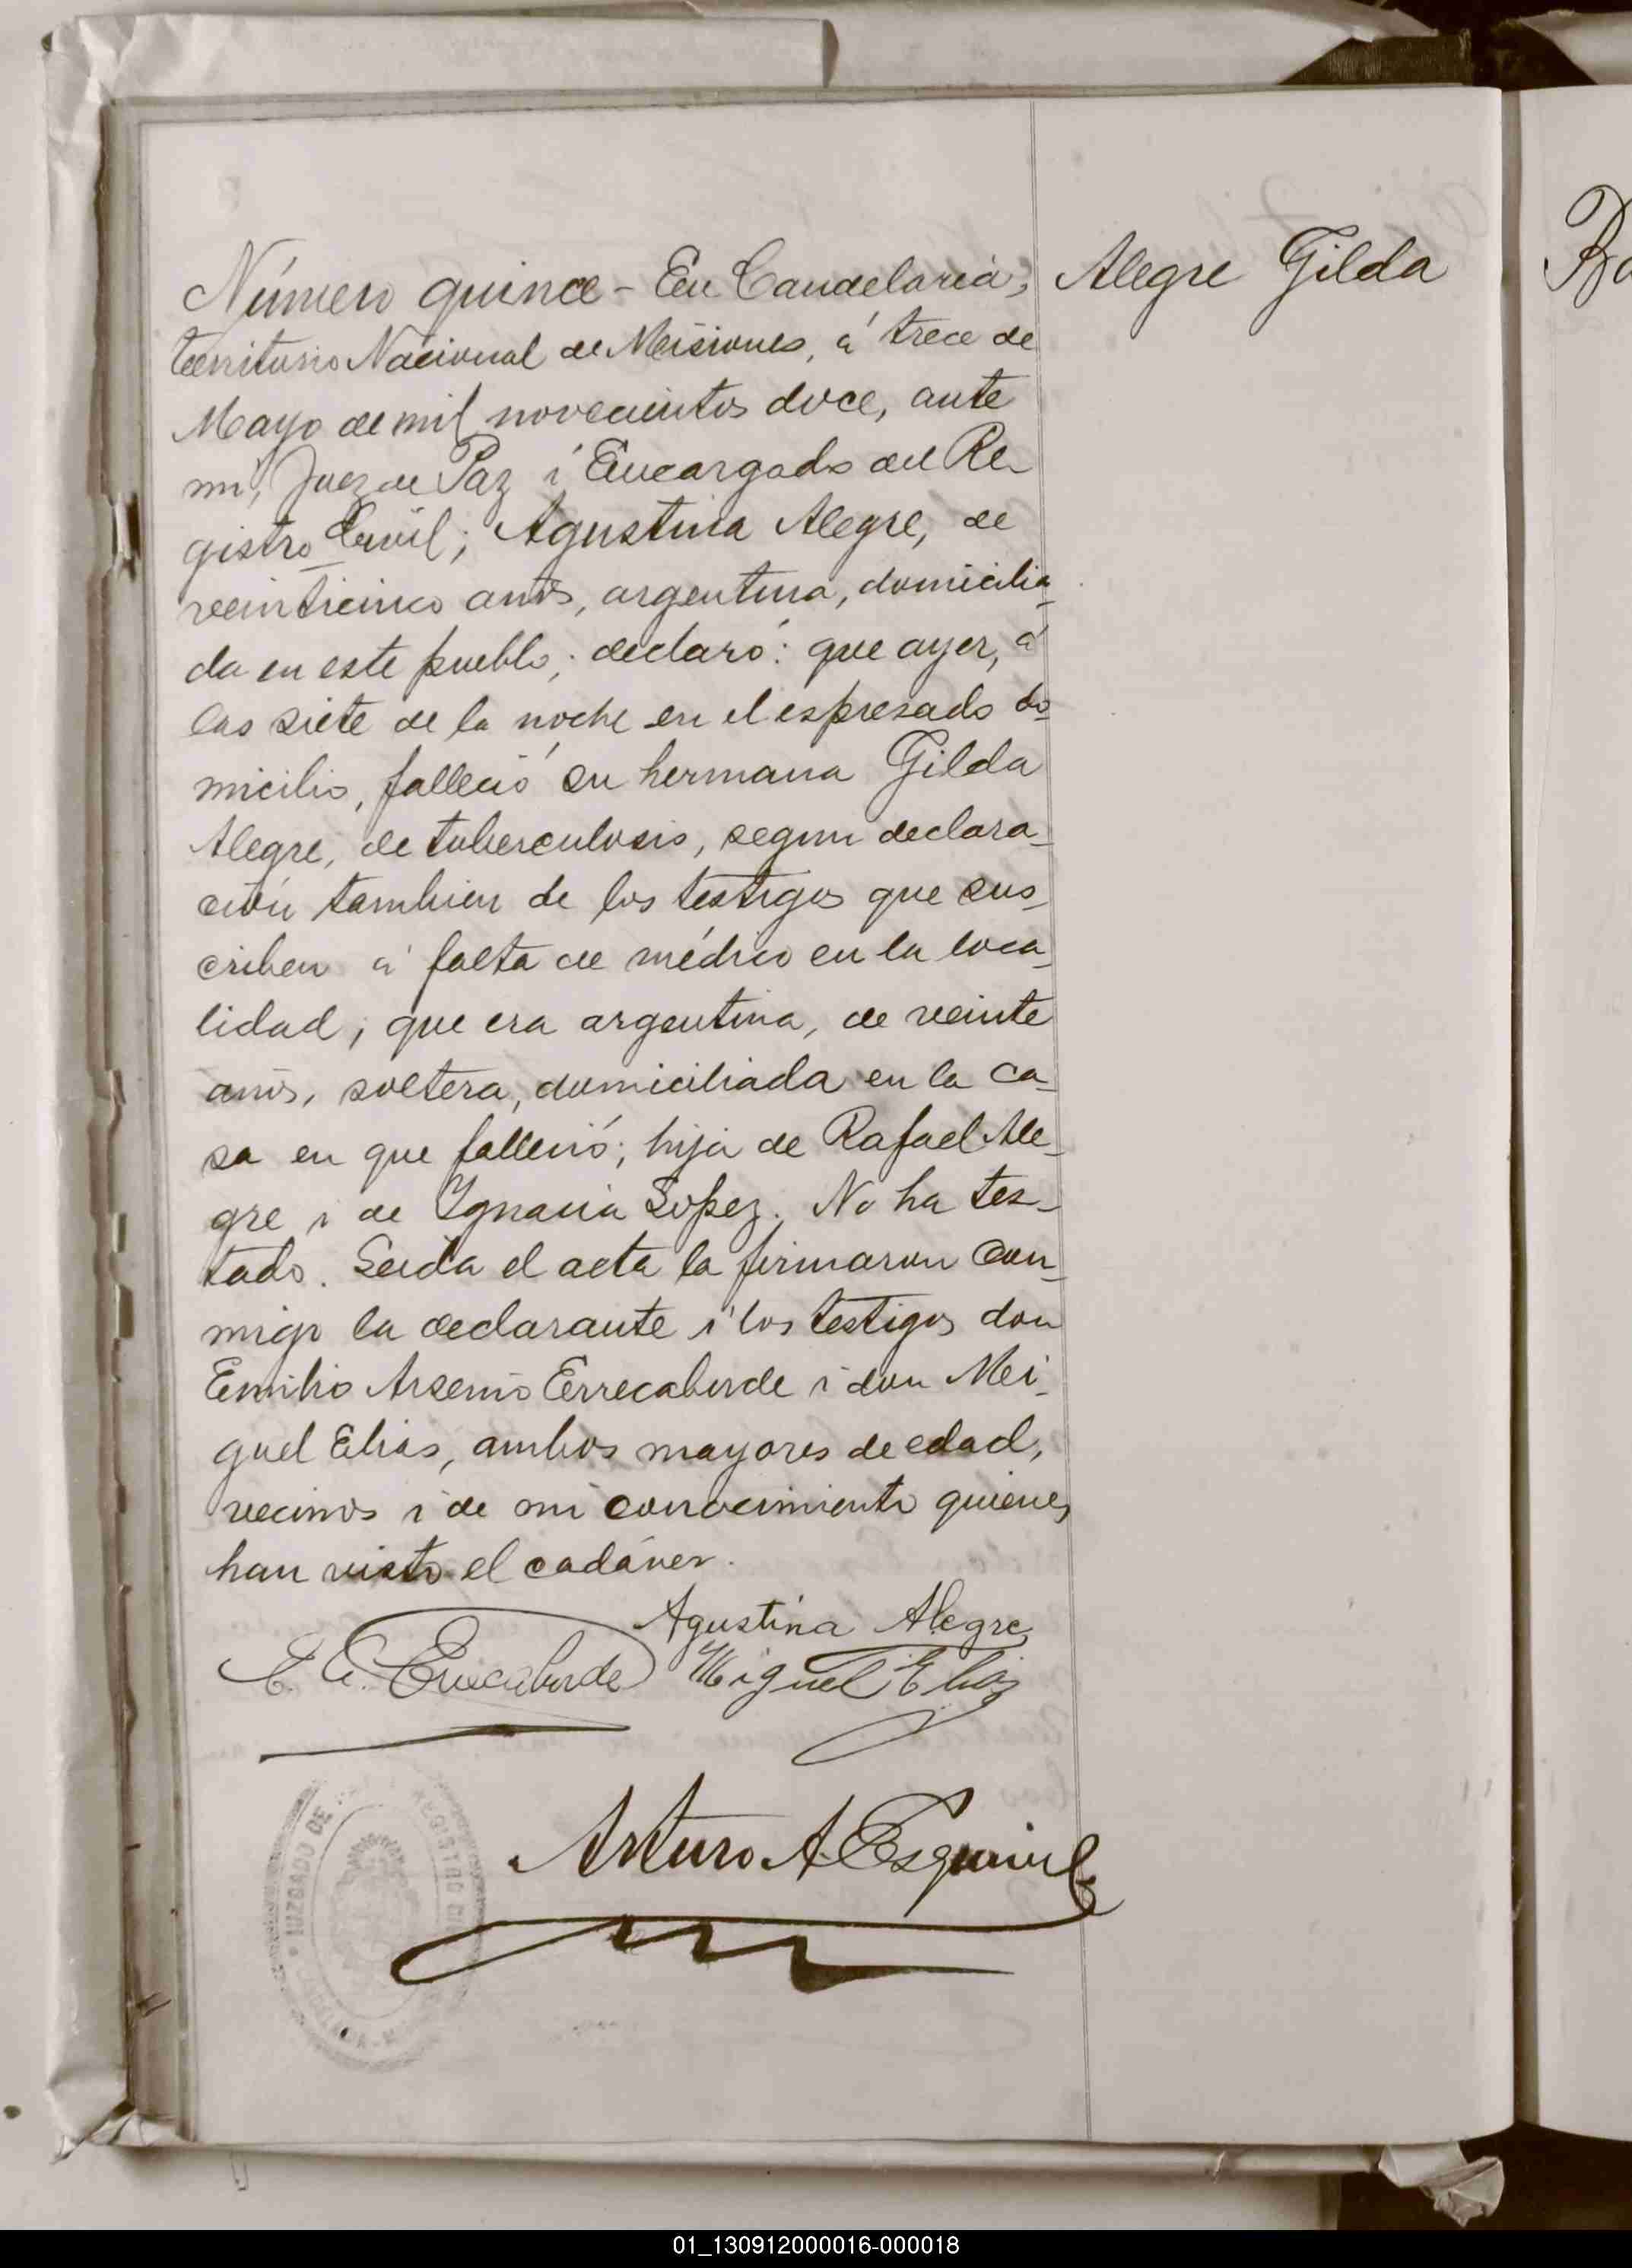 Número quince - En Candelaria,
Alegre Gilda
territorio Nacional de Misiones, á trece de
Mayo de mil novecientos doce, ante
mí, Juez de Paz i Encargado del Re-
gistro Civil; Agustina Alegre, de
veinticinco años, argentina, domicilia-
da en este pueblo; declaró: que ayer, á
las siete de la noche en el espresado do-
micilio, falleció su hermana Gilda
Alegre, de tuberculosis, segun declara-
ción tambien de los testigos que sus-
criben á falta de médico en la loca-
lidad; que era argentina, de veinte
años, soltera, domiciliada en la ca-
sa en que falleció; hija de Rafael Ale-
gre i de Ignacia Lopez. No ha tes-
tado. Leida el acta la firmaron con-
migo la declarante i los testigos don
Emilio Arsenio Errecaborde i don Mi-
guel Elias, ambos mayores de edad,
vecinos i de mi conocimiento quienes
han visto el cadáver.
Agustina Alegre
E. A. Errecaborde Miguel Elias
Arturo A. Esquivel
JUZGADO DE
REGISTRO CI
01_130912000016-000018